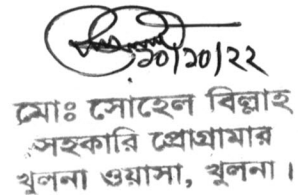 ২০/১০/২২
মোঃ সোহেল বিল্লাহ
সহকারি প্রোগ্রামার
খুলনা ওয়াসা, খুলনা।